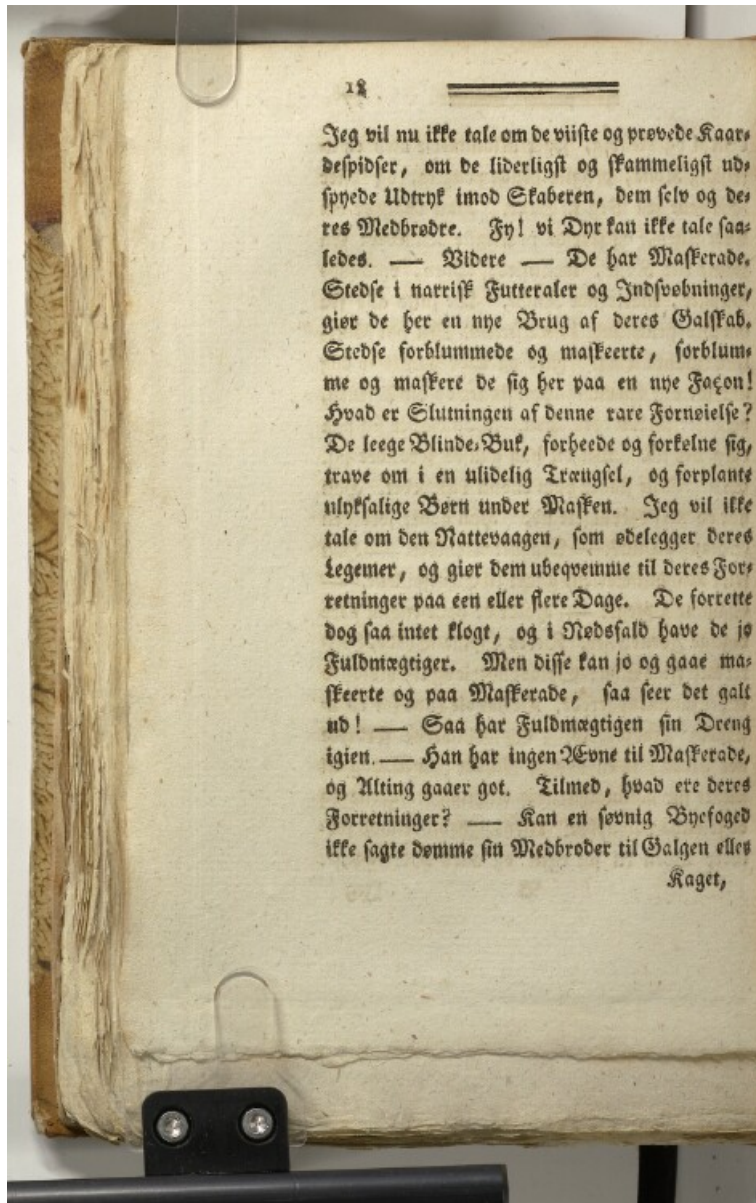 18
Jeg vil nu ikke tale om de viiste og prøvede Kaar-
despidser, om de liderligst og skammeligst ud-
spyede Udtryk imod Skaberen, dem selv og de-
res Medbrødre. Fy! vi Dyr kan ikke tale saa-
ledes. — Videre — De har Maskerade.
Stedse i narrisk Futteraler og Indsvøbninger,
giør de her en nye Brug af deres Galskab.
Stedse forblummede og maskeerte, forblum-
me og maskere de sig her paa en nye Façon!
Hvad er Slutningen af denne rare Fornøielse?
De leege Blinde-Buk, forheede og forkølne sig,
trave om i en ulidelig Trængsel, og forplante
ulyksalige Børn under Masken. Jeg vil ikke
tale om den Nattevaagen, som ødelegger deres
Legemer, og giør dem ubeqvemme til deres For-
retninger paa een eller flere Dage. De forrette
dog saa intet klogt, og i Nødsfald have de jo
Fuldmægtiger. Men disse kan jo og gaae ma-
skeerte og paa Maskerade, saa seer det galt
ud! — Saa har Fuldmægtigen sin Dreng
igien. — Han har ingen Ævne til Maskerade,
og Alting gaaer got. Tilmed, hvad ere deres
Forretninger? — Kan en søvnig Byefoged
ikke sagte dømme sin Medbroder til Galgen eller
Kaget,